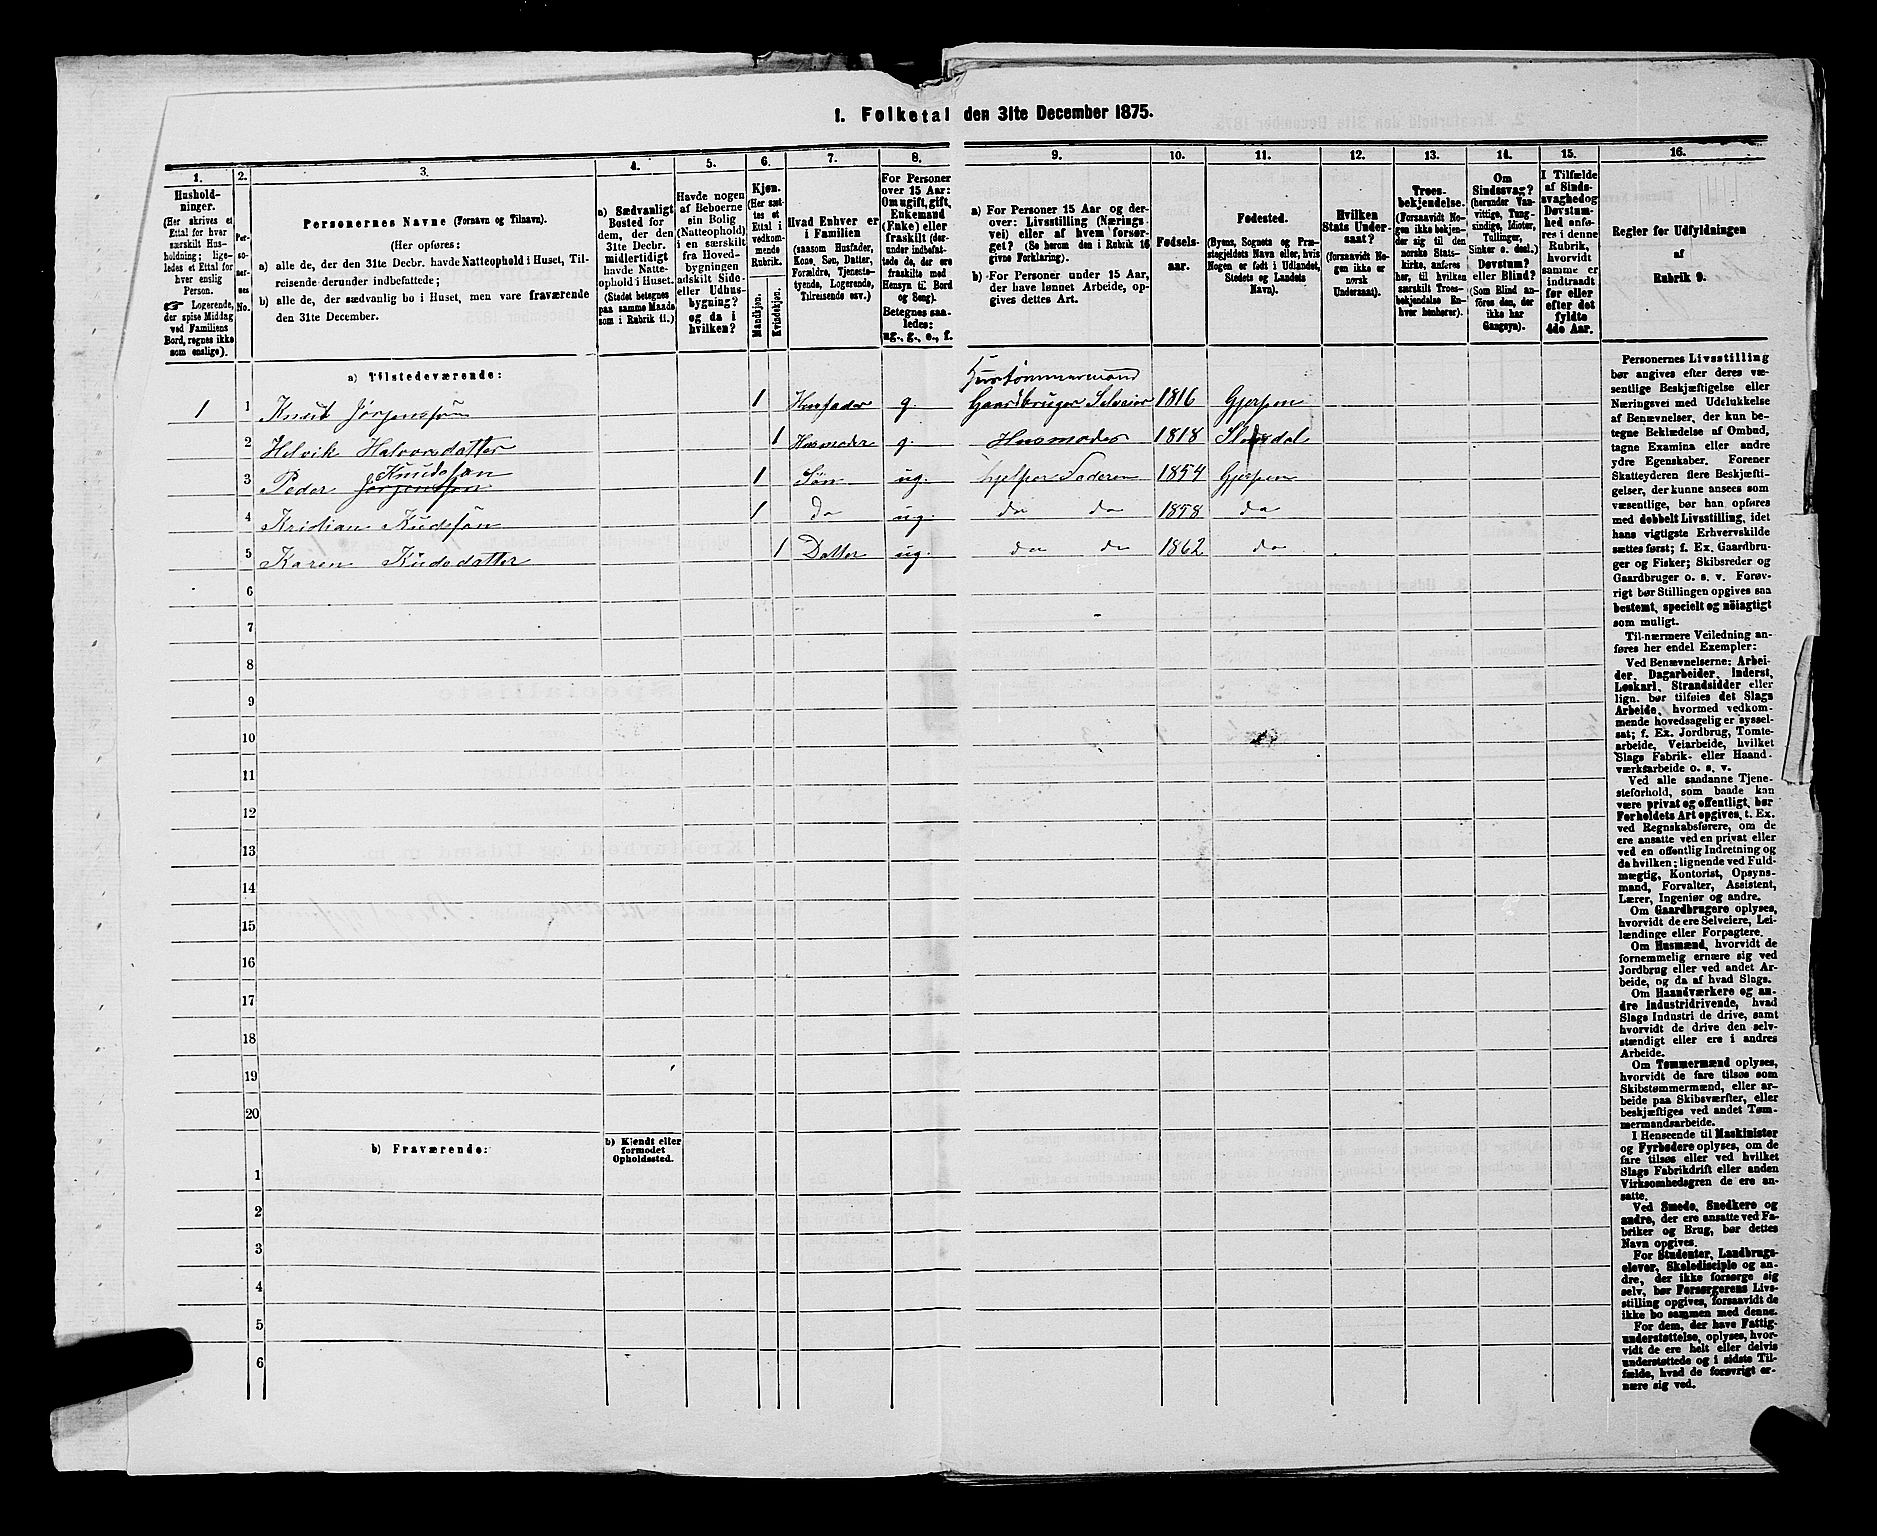 1. Folketal den 31te December 1875.
1.
2.
3.
4.
5.
6.
7.
8.
9.
10.
11.
12.
13.
14.
15.
16.
Hushold-
ninger.
(Her skrives et
Ettal for hver
særskilt Hus-
holdning; lige-
ledes et Ettal for
hver enslig
Person.
☞ Logerende,
der spise Middag
ved Familiens
Bord, regnes ikke
som enslige).
Per-
so-
ner-
nes
No.
Personernes Navne (Fornavn og Tilnavn).
(Her opføres:
a) alle de, der den 31te Decbr. havde Natteophold i Huset, Til-
reisende derunder indbefattede;
b) alle de, der sædvanlig bo i Huset, men vare fraværende
den 31te December.
a) Sædvanligt
Bosted for
dem, der den
31te Decbr.
midlertidigt
havde Natte-
ophold i Huset.
(Stedet betegnes
paa samme Maade
som i Rubrik 11.)
Havde nogen
af Beboerne
sin Bolig
(Natteophold)
i en særskilt
fra Hoved-
bygningen
adskilt Side-
eller Udhus-
bygning?
og da i
hvilken?
Kjøn.
(Her sæt-
tes et
Ettal i
vedkom-
mende
Rubrik.
Mandkjøn.
Kvindekjøn.
Hvad Enhver er
i Familien
(saasom Husfader,
Kone, Søn, Datter,
Forældre, Tjeneste-
tyende, Logerende,
Tilreisende osv.)
For Personer
over 15 Aar:
Om ugift, gift,
Enkemand
(Enke) eller
fraskilt (der-
under indbefat-
tede de, der ere
fraskilte med
Hensyn til Bord
og Seng).
Betegnes saa-
ledes:
ug., g., e., f.
a) For Personer 15 Aar og der-
over: Livsstilling (Nærings-
vei) eller af hvem forsør-
get? (Se herom den i Rubrik 16
givne Forklaring).
b) For Personer under 15 Aar,
der have lønnet Arbeide, op-
gives dettes Art.
Fødsels-
aar.
Fødested.
(Byens, Sognets og Præ-
stegjeldets Navn eller, hvis
Nogen er født i Udlandet,
Stedets og Landets
Navn).
Hvilken
Stats Under-
saat?
(forsaavidt No-
gen ikke er
norsk
Undersaat).
Troes-
bekjendelse.
(Forsaavidt No-
gen ikke bekjen-
der sig til den
norske Stats-
kirke, anføres
her, til hvilken
særskilt Troes-
bekjendelse En-
hver henhører).
Om
Sindssvag?
(herunder Van-
vittige, Tung-
sindige, Idioter,
Tullinger,
Sinker o. desl.).
Døvstum?
eller Blind?
(Som Blind an-
føres den, der
ikke har
Gangsyn).
I Tilfælde
af Sinds-
svaghed og
Døvstum-
hed anfø-
res i denne
Rubrik,
hvorvidt
samme er
indtraadt
før eller
efter det
fyldte
4de Aar.
Regler for Udfyldningen
af
Rubrik 9.
a) Tilstedeværende:
Hustømmermand
1 1 Knud Jørgenssøn 1 Husfader g. Gaardbruger Selveier 1816 Gjerpen
2 Helvik Halvorsdatter 1 Husmoder g. Husmoder 1818 Slemdal
Knudssøn
3 Peder Jørgenssøn 1 Søn ug. hjelper Faderen 1854 Gjerpen
4 Kristian Kudssøn 1 Do ug. do do 1858 do
5 Karen Kudsdatter 1 Datter ug. do do 1862 do
6
7
8
9
10
11
12
13
14
15
16
17
18
19
20
b) Fraværende:
b) Kjendt eller
formodet
Opholdssted.
1
2
3
4
5
6
Personernes Livsstilling
bør angives efter deres væ-
sentlige Beskjæftigelse eller
Næringsvei med Udelukkelse
af Benævnelser, der kun be-
tegne Beklædelse af Ombud,
tagne Examina eller andre
ydre Egenskaber. Forener
Skatteyderen flere Beskjæfti-
gelser, der kunne ansees som
væsentlige, bør han opføres
med dobbelt Livsstilling, idet
hans vigtigste Erhvervskilde
sættes først; f. Ex. Gaardbru-
ger og Fisker; Skibsreder og
Gaardbruger o. s. v. Forøv-
rigt bør Stillingen opgives saa
bestemt, specielt og nøiagtigt
som muligt.
Til nærmere Veiledning an-
føres her endel Exempler:
Ved Benævnelserne: Arbei-
der, Dagarbeider, Inderst,
Løskarl, Strandsidder eller
lign. bør tilføies det Slags
Arbeide, hvormed vedkom-
mende hovedsagelig er syssel-
sat; f. Ex. Jordbrug, Tomte-
arbeide, Veiarbeide, hvilket
Slags Fabrik- eller Haand-
værksarbeide o. s. v.
Ved alle saadanne Tjene-
steforhold, som baade kan
være privat og offentligt, bør
Forholdets Art opgives, t. Ex.
ved Regnskabsførere, om de
ere ansatte ved en privat eller
ved en offentlig Indretning og
da hvilken; lignende ved Fuld-
mægtig, Kontorist, Opsyns-
mand, Forvalter, Assistent,
Lærer, Ingeniør og andre.
Om Gaardbrugere oplyses,
hvorvidt de ere Selveiere, Lei-
lændinge eller Forpagtere.
Om Husmænd, hvorvidt de
fornemmelig ernære sig ved
Jordbrug eller ved andet Ar-
beide, og da af hvad Slags.
Om Haandværkere og an-
dre Industridrivende, hvad
Slags Industri de drive, samt
hvorvidt de drive den selv-
stændigt eller ere i andres
Arbeide.
Om Tømmermænd oplyses,
hvorvidt de fare tilsøs som
Skibstømmermænd, eller ar-
beide paa Skibsværfter, eller
beskjæftiges ved andet Tøm-
mermandsarbeide.
I Henseende til Maskinister
og Fyrbødere oplyses, om de
fare tilsøs eller ved hvilket
Slags Fabrikdrift eller anden
Virksomhedsgren de ere an-
satte.
Ved Smede, Snedkere og
andre, der ere ansatte ved Fa-
briker og Brug, bør dettes
Navn opgives.
For Studenter, Landbrugs-
elever, Skoledisciple og an-
dre, der ikke forsørge sig
selv, bør Forsørgerens Livs-
stilling opgives, forsaavidt de
ikke bo sammen med denne.
For dem, der have Fattig-
understøttelse, oplyses, hvor-
vidt de ere helt eller delvis
understøttede og i sidste Til-
fælde, hvad de forøvrigt er-
nære sig ved.